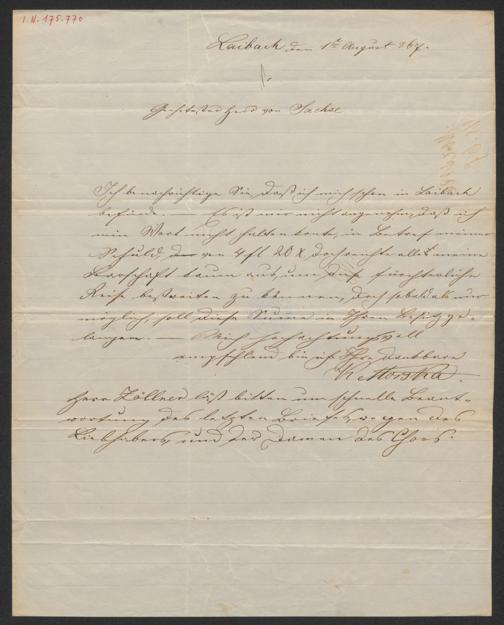 I.N. 175.770
Laibach den 1te August 867.
Geehrtester Herr von Sachse
Ich benachrichtige Sie daß ich mich schon in Laibach
befinde. — Es ist mir nicht angenehm, daß ich
mein Wort nicht halten konte, in Betref meiner
Schuld, von 4 fl 20 x, doch reichte all meine
Baarschaft kaum aus, um diese fürchterliche
Reise bestreiten zu können, doch sobald als nur
möglich, soll diese Summe in Ihren Besitz ge-
langen. — Mich hochachtungsvoll
empfehlend bin ich Ihre dankbare
Herr Zöllner läßt bitten um schnelle Beant-
wortung des letzten Briefes, wegen des
Liebhabers, und der Damen des Chors.